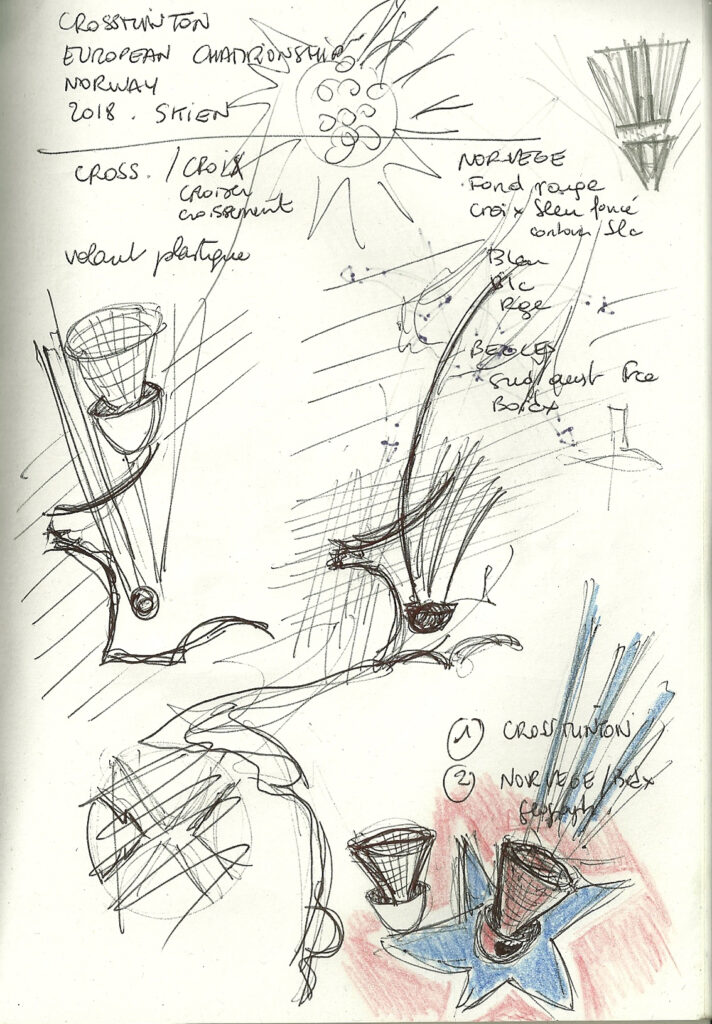 CROSSMINTON
EUROPEAN CHAMPIONSHIP
NORWAY
2018. SKIEN
CROSS. / CROIX
croiser
croissement
volant plastique
NORVEGE
Fond rouge
Croix bleu foncé
contour blc
Bleu
Blc
Rge
BEGLES
Sud ouest Fce
Bordx
① CROSSMINTON
② NORVEGE/Bdx